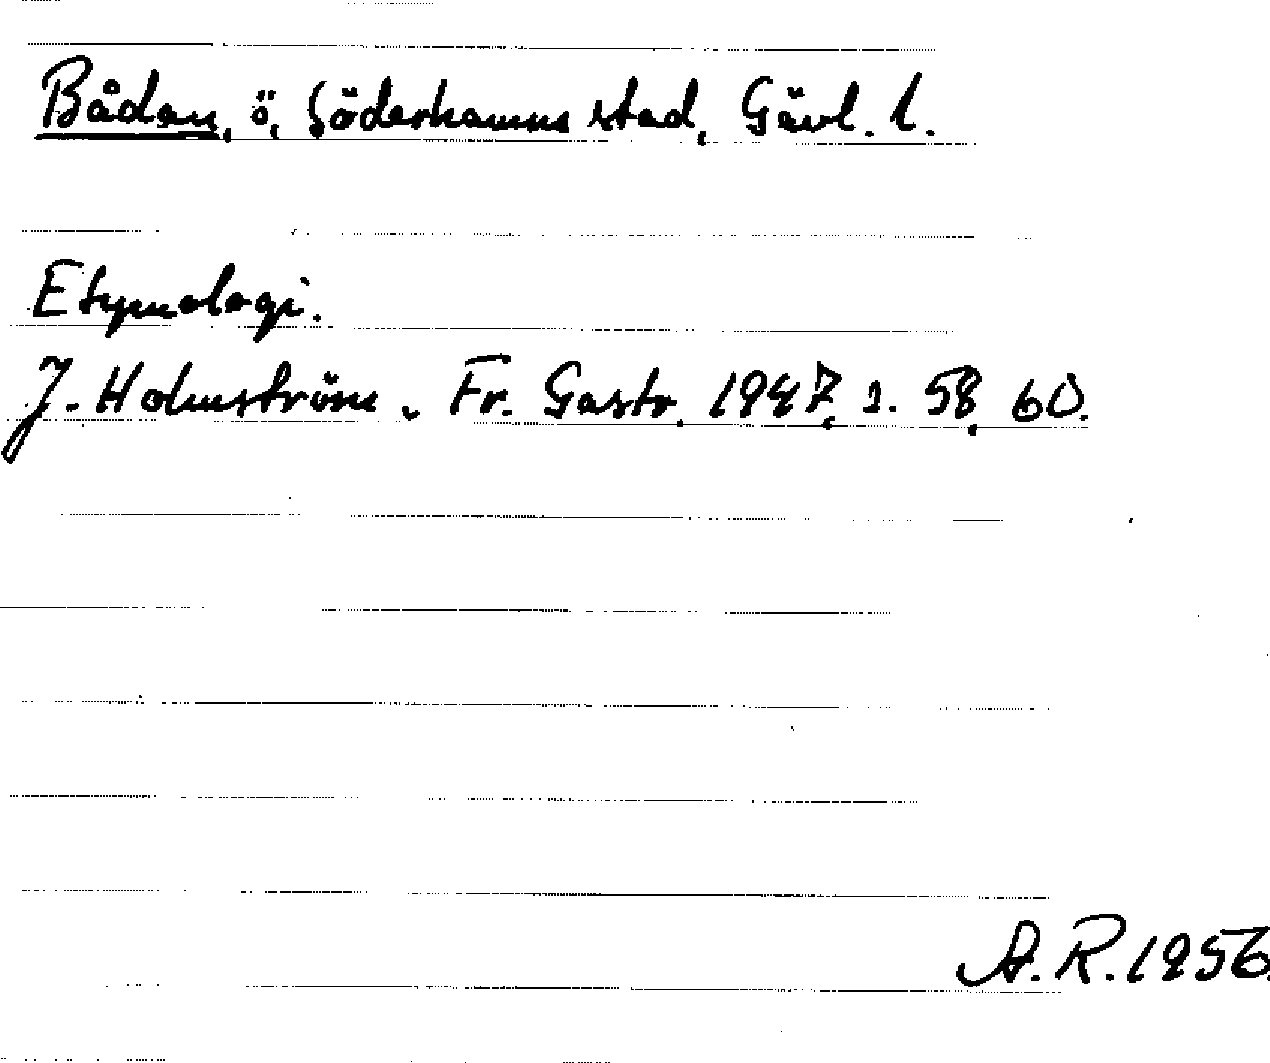 Bådan, ö, Söderhamns stad, Gävl. l.
Etymologi.
J. Holmström, Fr. Gastr. 1947, s. 58, 60.
A. R. 1956.